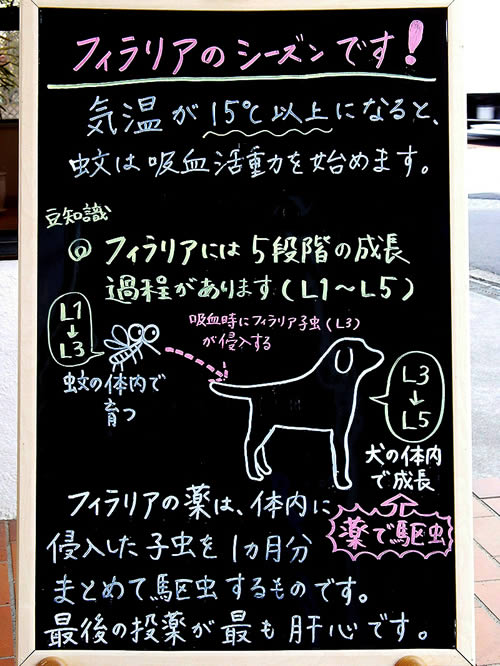 フィラリアのシーズンです!
気温が15℃以上になると、
蚊は吸血活動を始めます。
豆知識
◎ フィラリアには5段階の成長
過程があります(L1〜L5)
L1
↓
L3
蚊の体内で
育つ
吸血時にフィラリア子虫(L3)
が侵入する
L3
↓
L5
犬の体内
で成長
薬で駆虫
フィラリアの薬は、体内に
侵入した子虫を1ヵ月分
まとめて駆虫するものです。
最後の投薬が最も肝心です。